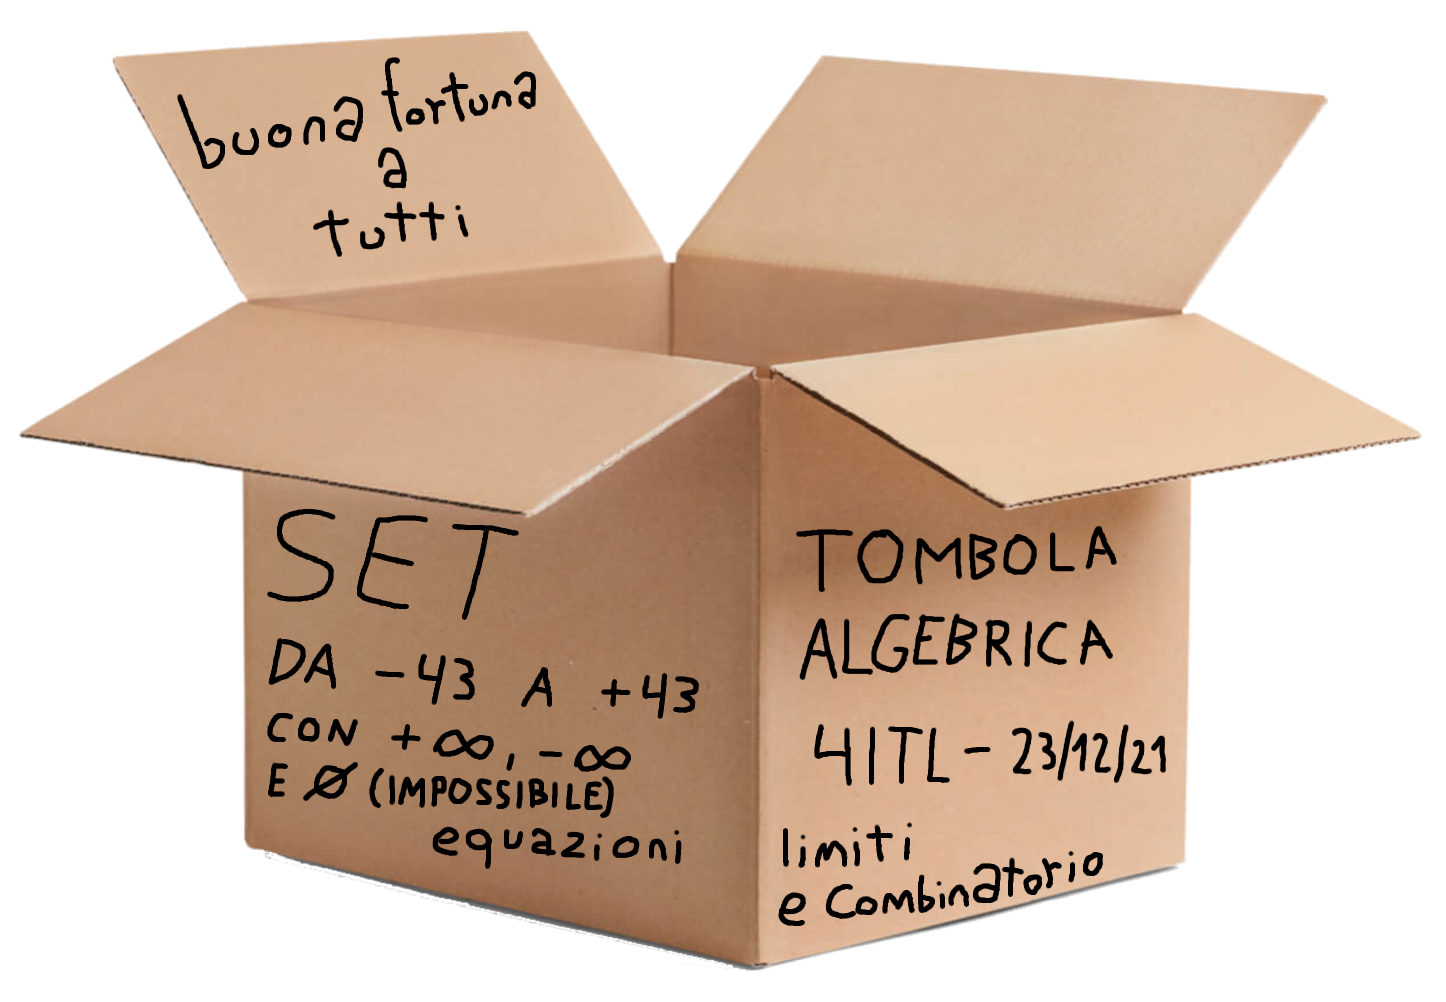 buona fortuna
a
tutti
SET
DA -43 A +43
CON +∞, -∞
E Ø (IMPOSSIBILE)
equazioni
TOMBOLA
ALGEBRICA
4ITL - 23/12/21
limiti
e combinatorio